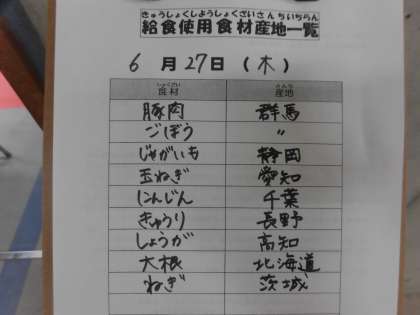 きゅうしょくしようしょくざいさんちいちらん
給食使用食材産地一覧
6 月 27 日 ( 木 )
しょくざい さんち
食材 産地
豚肉 群馬
ごぼう 〃
じゃがいも 静岡
玉ねぎ 愛知
にんじん 千葉
きゅうり 長野
しょうが 高知
大根 北海道
ねぎ 茨城